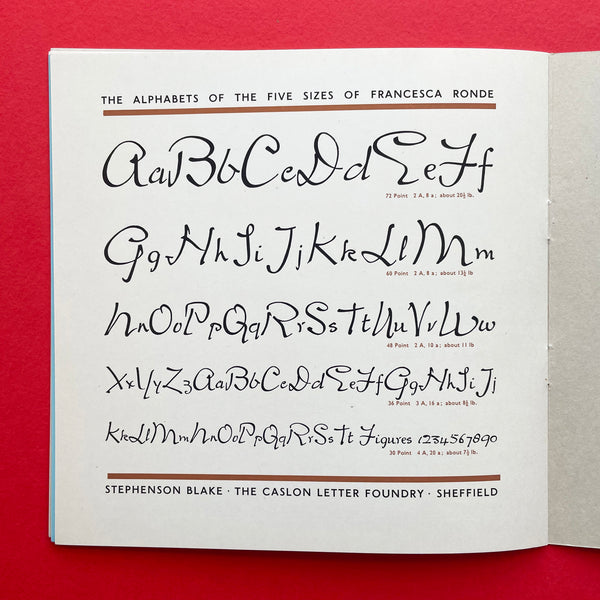 THE ALPHABETS OF THE FIVE SIZES OF FRANCESCA RONDE
AaBbCcDdEeFf
72 Point 2 A, 8 a; about 20½ lb.
GgHhIiJjKkLlMm
60 Point 2 A, 8 a; about 13½ lb
NnOoPpQqRrSsTtUuVvWw
48 Point 2 A, 10 a; about 11 lb
XxYyZzAaBbCcDdEeFfGgHhIiJj
36 Point 3 A, 16 a; about 8¾ lb.
KkLlMmNnOoPpQqRrSsTt Figures 1234567890
30 Point 4 A, 20 a; about 7½ lb.
STEPHENSON BLAKE · THE CASLON LETTER FOUNDRY · SHEFFIELD